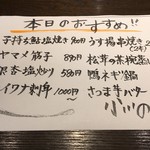 本日のおすすめ!!
子持ち鮎塩焼き 900円
ヤマメ筋子 890円
銀杏塩炒り 580円
イクラ刺身 1000円〜
うす揚串焼き
(2本)
松茸の茶碗蒸し
鴨ネギ鍋
さつま芋バター
小川の